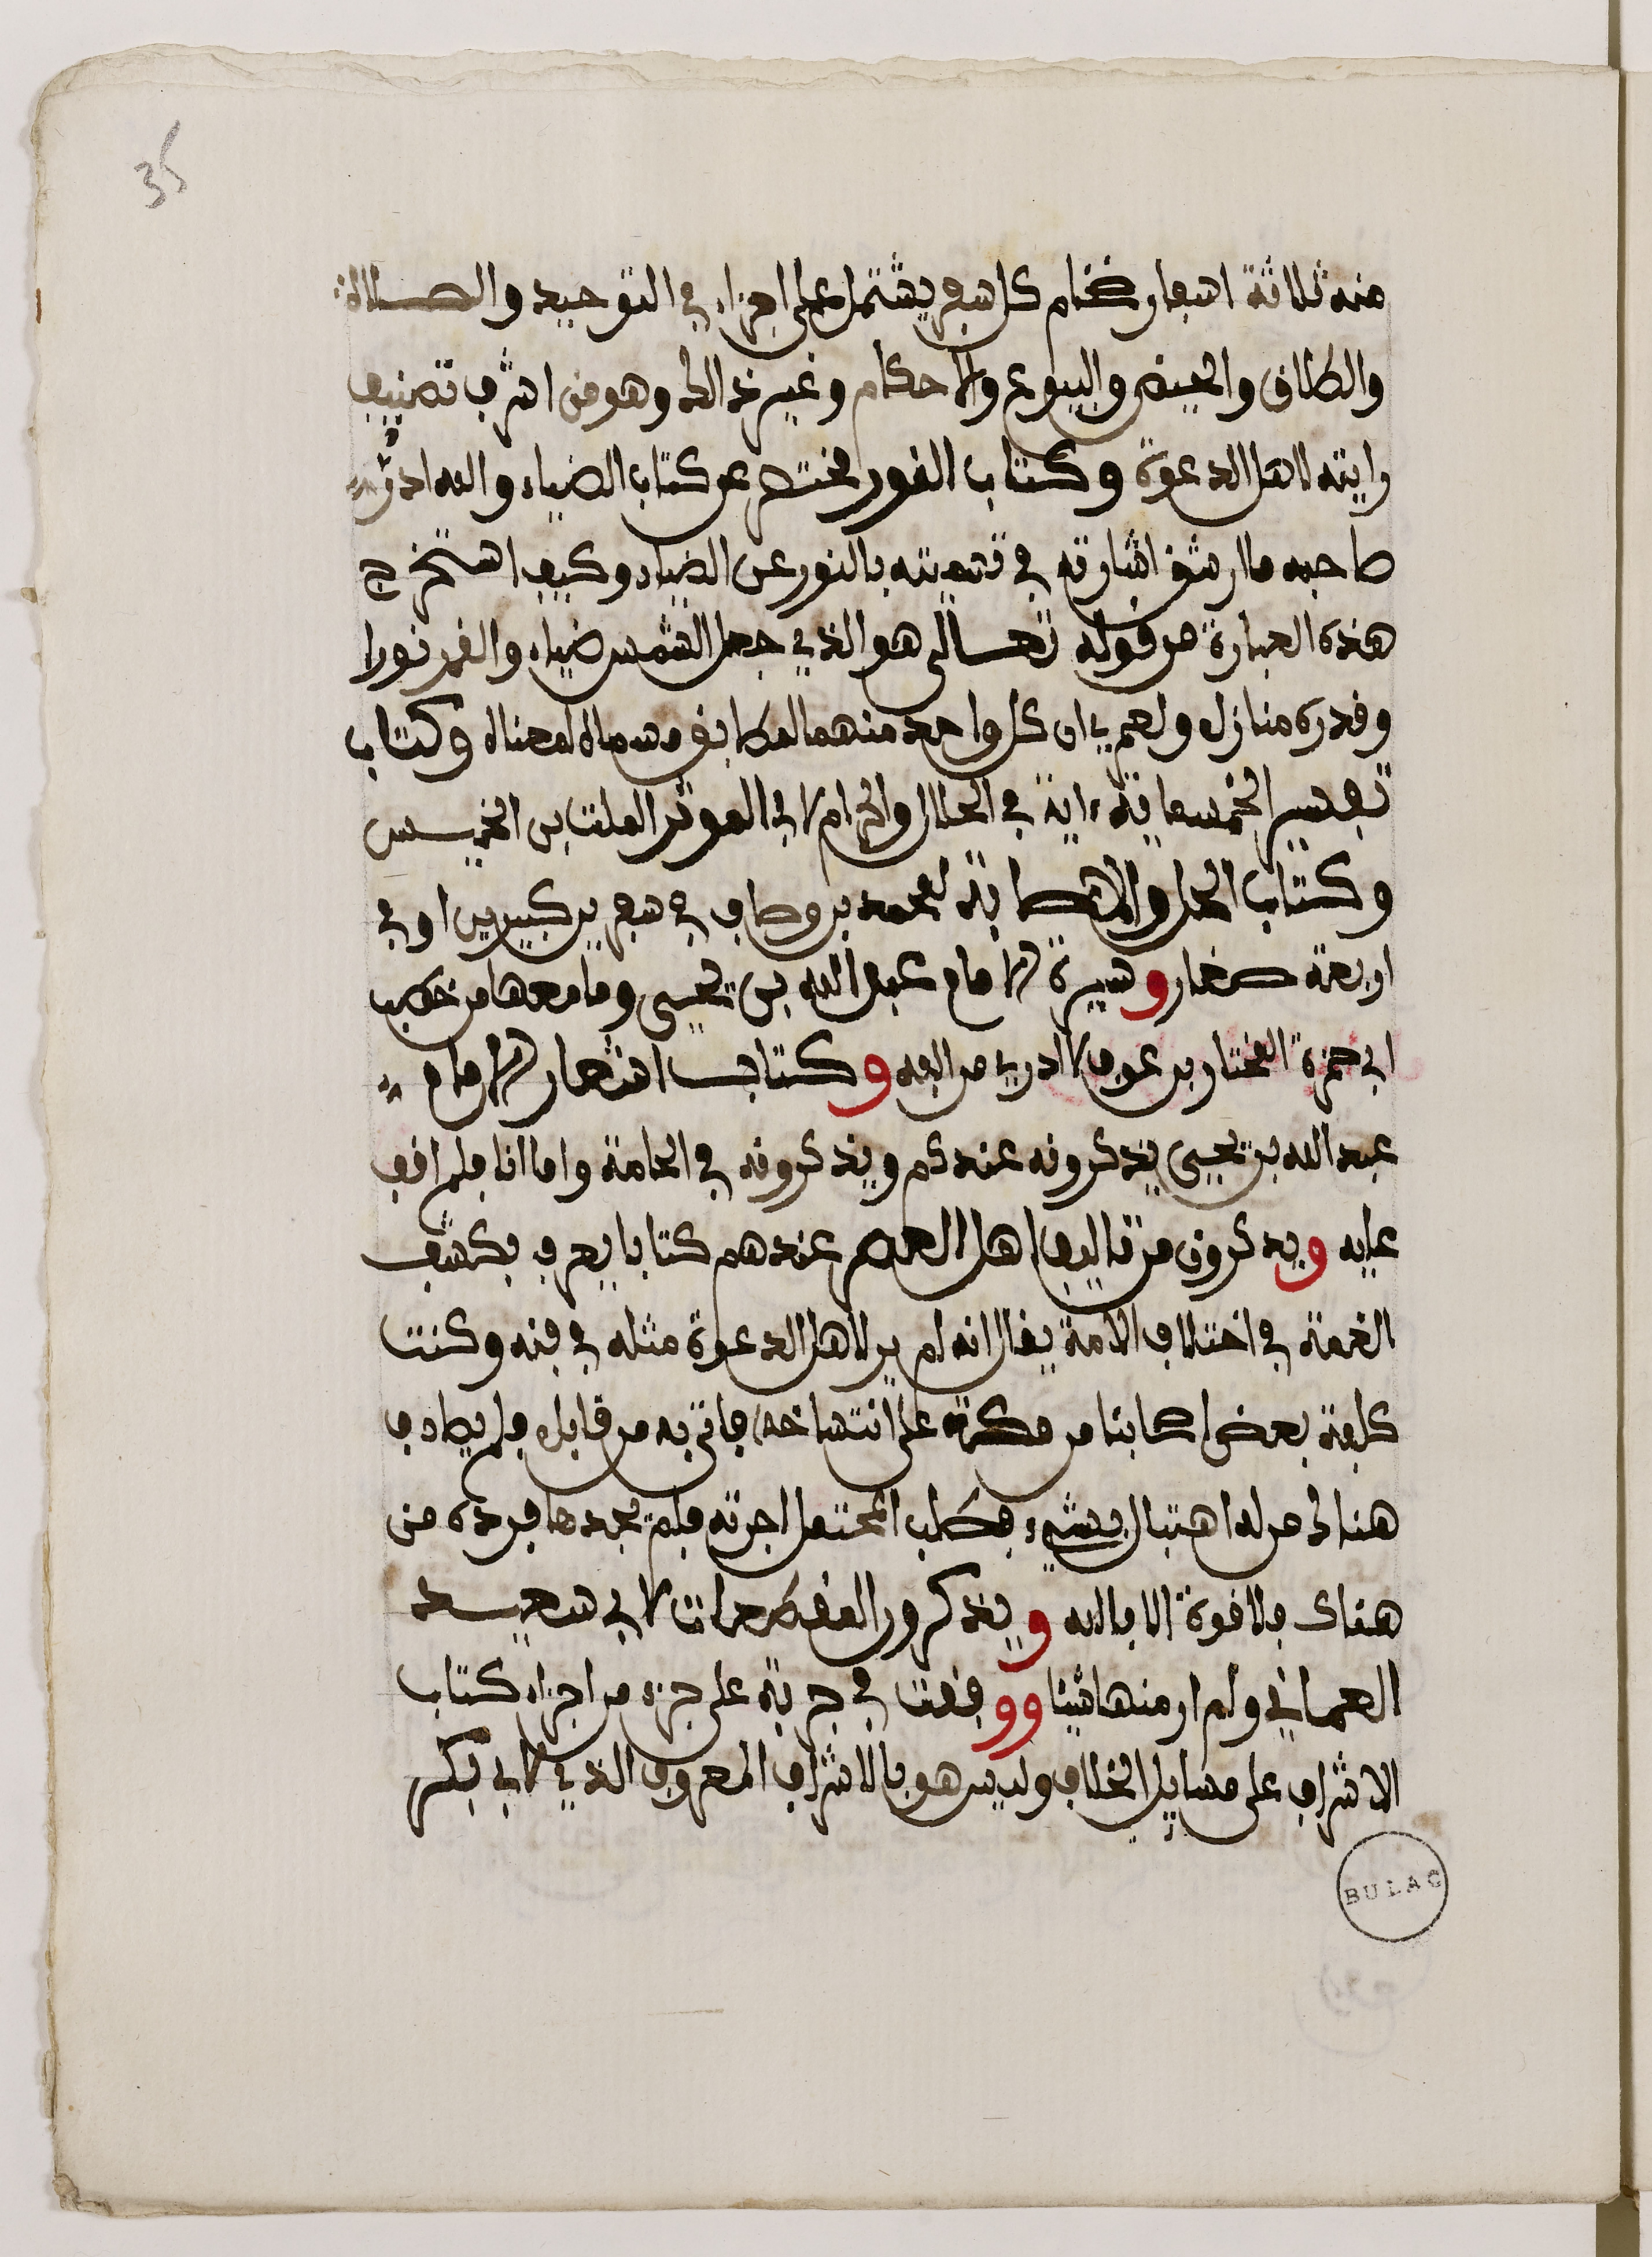 35
منه ثلاثة اسفار ضخام كل سفر يشتمل على اجزاء في التوحيد والصلاة
والطلاق والحيض والبيوع والاحكام وغير ذالك وهو من اشرف تصنيف
رايته لاهل الدعوة وكتاب النور مختصر عن كتاب الضياء ولله در
صاحبه ما ارشق اشارته في تسميته بالنور عن الضياء وكيف استخرج
هذه العبارة من قوله تعالى هو الذي جعل الشمس ضياء والقمر نورا
وقدره منازل ولعمري ان كل واحد منهما لمطابق مسماه لمعناه وكتاب
تفسير الخمسماية ءاية في الحلال والحرام لابي الموثر الصلت بن الخميس
وكتاب الحل والاصابة لمحمد بن وصاف في سفرين كبيرين او في
اربعة صغار وسيرة الامام عبد الله بن يحيى وما معها من خطب
ابي حمزة المختار بن عوف الازدي من الفه وكتاب اشعار الامام
عبد الله بن يحيى يذكرونه عندكم ويذكرونه في الحامة واما انا فلم اقف
عليه ويذكرون من تاليف اهل العصر عندهم كتابا يعرف بكشف
الغمة في اختلاف الامة يقال انه لم ير لاهل الدعوة مثله في فنه وكنت
كلفت بعض اصحابنا من مكة على انتساخه فاتى به من قابل فلم يصادف
هنالك من له اهتبال بشيء فطلب المحتمل اجرته فلم يجدها فرده من
هناك فلا قوة الا بالله ويذكرون المقطعات لابي سعيد
العماني ولم ار منها شيئا ووقفت في جربة على جزء من اجزاء كتاب
الاشراف على مسايل الخلاف وليس هو بالاشراف المعروف الذي لابي بكر
BULAC